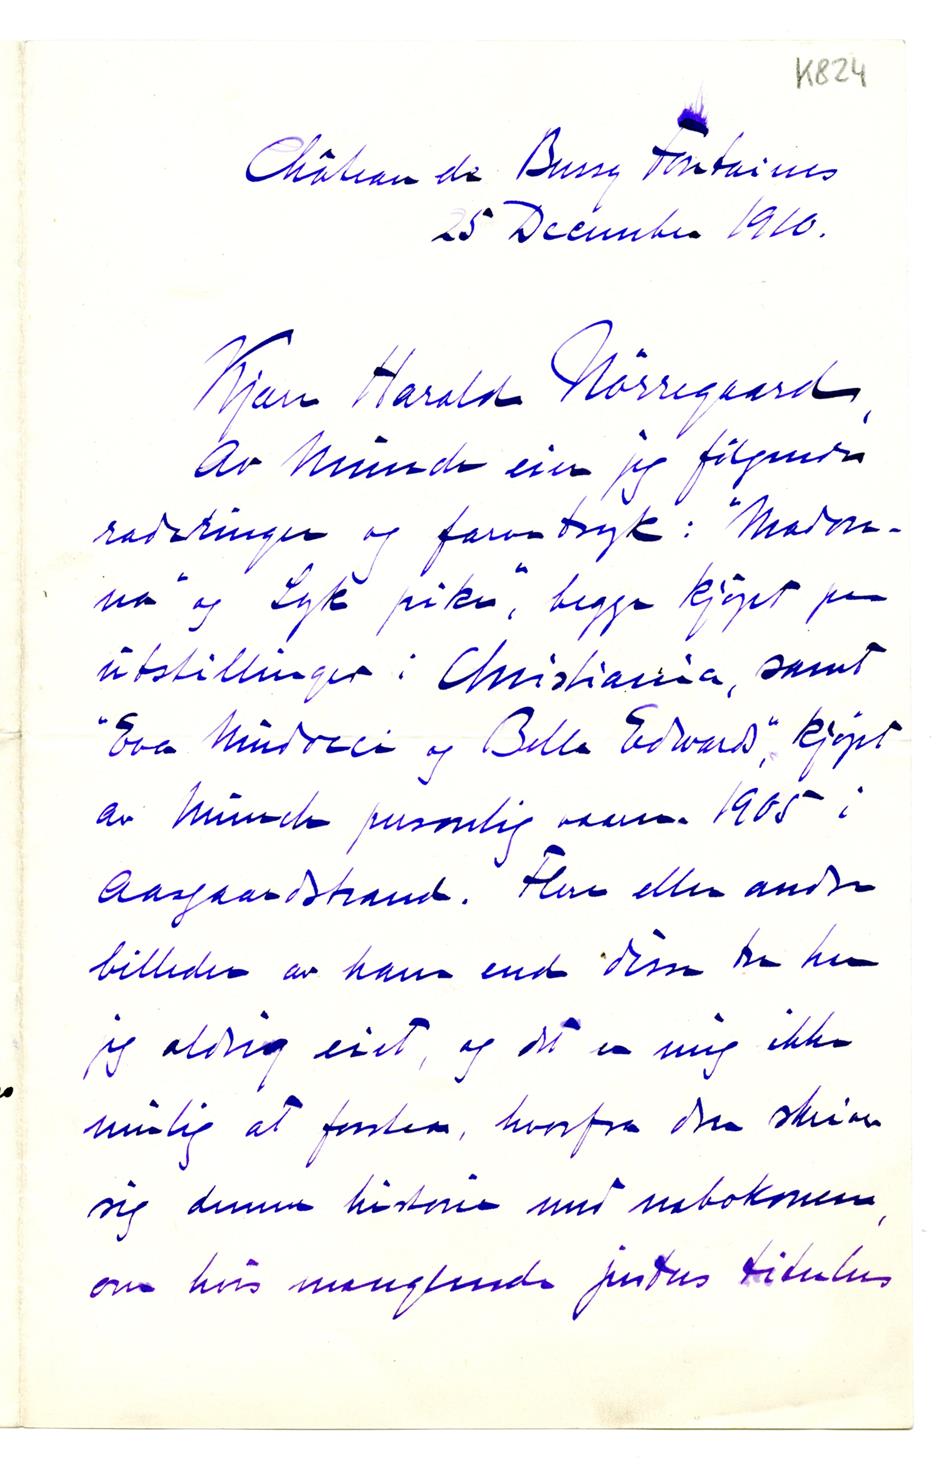 K824
Château de Bussy Fontaines
25 December 1910.
Kjære Harald Nörregaard,
Av Münch eier jeg följende
raderinger og farvetryk: "Madon-
na" og Syk pike", begge kjöpt paa
utstillinger i Christiania, samt
"Eva Müdocci og Bella Edwards", kjöpt
av Münch personlig vaaren 1905 i
Aasgaardstrand. Flere eller andre
billeder av ham end disse tre har
jeg aldrig eiet, og det er mig ikke
mulig at forstaa, hvorfra den skriver
sig denne historie med nabokonen,
om hvis manglende justus titulus